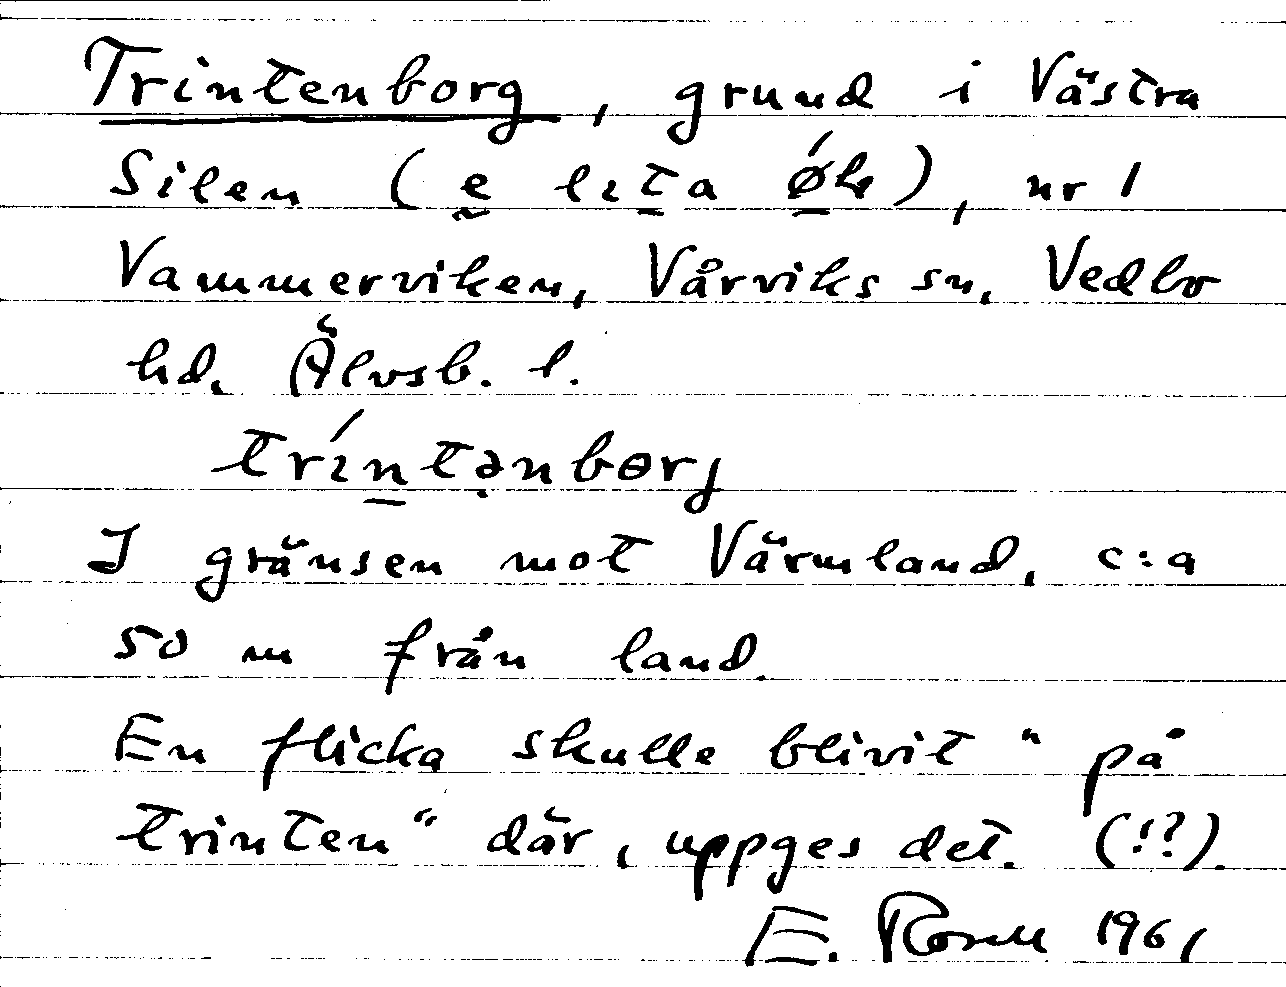 Trintenborg, grund i Västra
Silen (e̠ lıt̠a ǿ̠k), nr 1
Vammerviken, Vårviks sn, Vedbo
hd, Älvsb. l.
trı́n̠tə̣nbɵrj
I gränsen mot Värmland, c:a
50 m från land.
En flicka skulle blivit "på
trinten" där, uppges det. (!?).
E. Rosell 1961